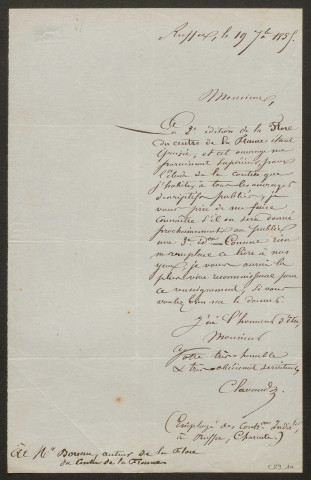 Ruffec, le 19 7bre 1855.
Monsieur,
La 2e édition de la Flore
du centre de la France étant
épuisée, et cet ouvrage me
paraissant supérieur, pour
l'étude de la contrée que
j'habite, à tous les ouvrages
descriptifs publiés, je
vous prie de me faire
connaître s'il en sera donné
prochainement au public
une 3e édon. Comme rien
ne remplace ce livre à mes
yeux, je vous aurai la
plus vive reconnaissance pour
ce renseignement si vous
voulez bien me le donner.
J'ai l'honneur d'être,
Monsieur
Votre très humble
& très obéissant serviteur,
Clavaud
(Employé des contons Indirtes
à Ruffec, Charente.)
A Mr Boreau, auteur de la Flore
du Centre de la France